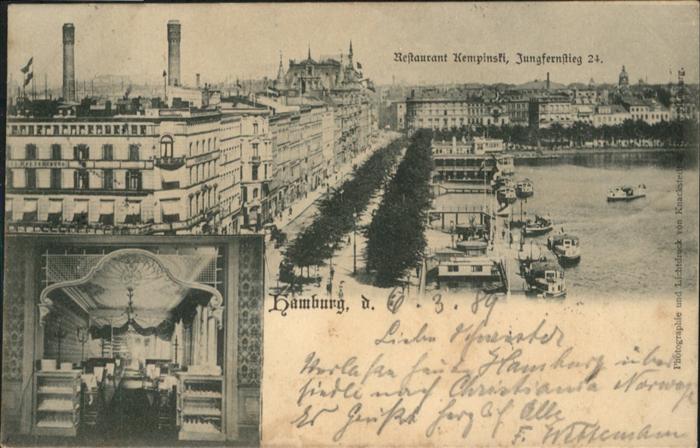 Restaurant Kempinski, Jungfernstieg 24.
Hamburg, d. 6. 3. 89
Liebe Schwester
Verlasse heute Hamburg über
siedle nach Christiania Norweg
Es Grüßt herzl Alle
F. Wittemann
Photographie und Lichtdruck von Knackstedt